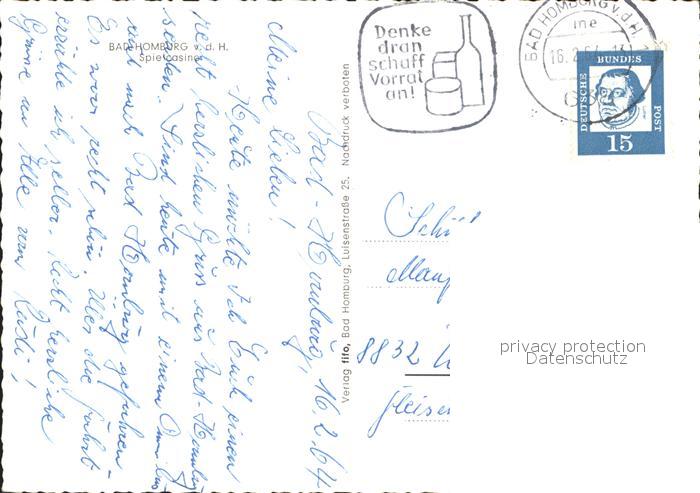 BAD HOMBURG v. d. H.
Spielcasino
Bad-Homburg, 16.2.64
Meine Lieben!
Heute möchte ich Euch einen
recht herzlichen Gruss aus Bad-Homburg
senden. Sind heute mit einem Omnibus
nach Bad Homburg gefahren
Es war sehr schön. Alles über Fahrt
erzähle ich selber. Recht herzliche
Grüsse an Alle von
Verlag fifo, Bad Homburg, Luisenstraße 25. Nachdruck verboten
Denke
dran
schaff
Vorrat
an!
BAD HOMBURG v.d.H.
16.2.64
DEUTSCHE
BUNDES
POST
15
8832
privacy protection
Datenschutz